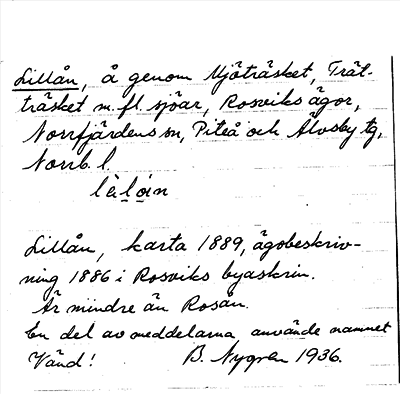 Lillån, å genom Mjöträsket, Trät-
träsket m.fl. sjöar, Rosviks ägor,
Norrfjärdens sn, Piteå och Älvsby tg,
Norrb. l.
Lillån, karta 1889, ägobeskriv-
ning 1886 i Rosviks byaskrin.
Är mindre än Rosån.
En del av meddelarna använde namnet
Vänd! B. Nygren 1936.